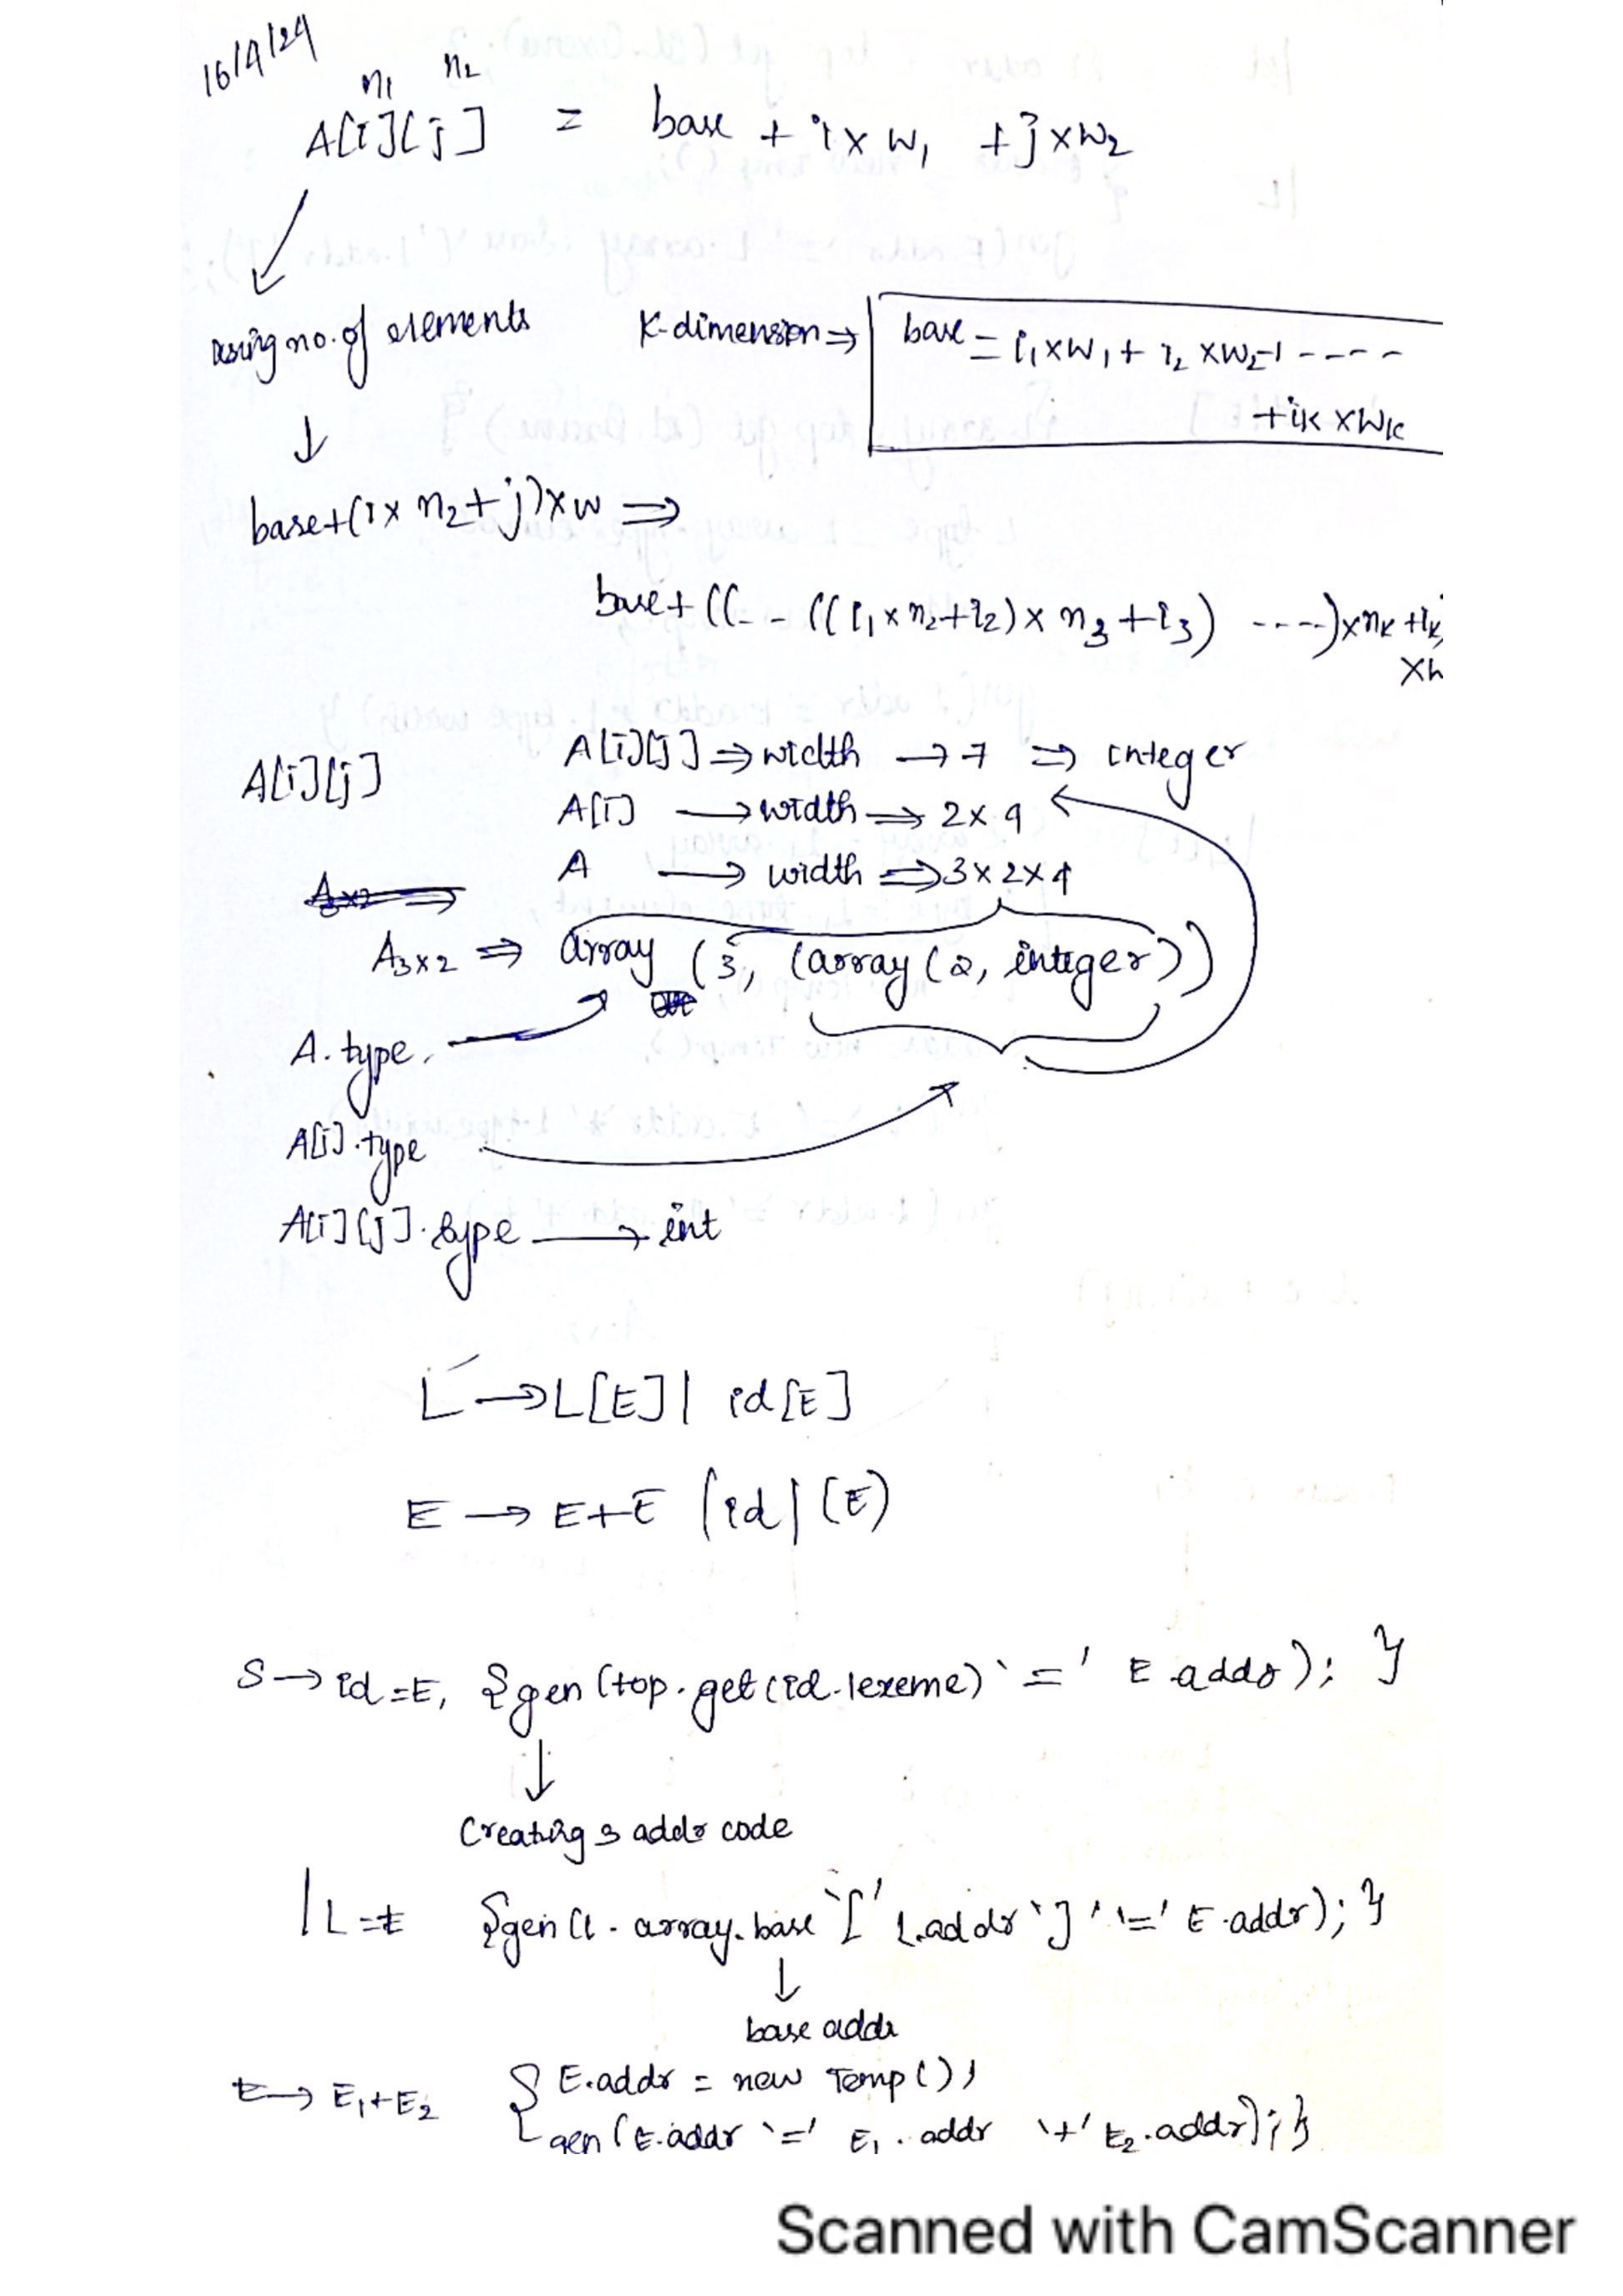 16/4/24
n1 n2
A[i][j] = base + i x w1 + j x w2
using no. of elements
K-dimension ⇒ base = i1 x w1 + i2 x w2 + - - - -
+ ik x wk
↓
base + (i x n2 + j) x w ⇒
base + ((- - ((i1 x n2 + i2) x n3 + i3) - - - -) x nk + ik
A[i][j] A[i][j] ⇒ width → 4 ⇒ integer
A[i] → width ⇒ 2 x 4
A → width ⇒ 3 x 2 x 4
A3x2 ⇒
A3x2 ⇒ array (3, (array (2, integer)))
A.type
A[i].type
A[i][j].type → int
L → L[E] | id[E]
E → E+E | id | (E)
S → id = E, {gen (top.get(id.lexeme) '=' E.addr); }
↓
Creating 3 addr code
| L = E {gen (L.array.base '[' L.addr ']' '=' E.addr); }
↓
base addr
E → E1+E2 { E.addr = new Temp();
gen (E.addr '=' E1.addr '+' E2.addr); }
Scanned with CamScanner